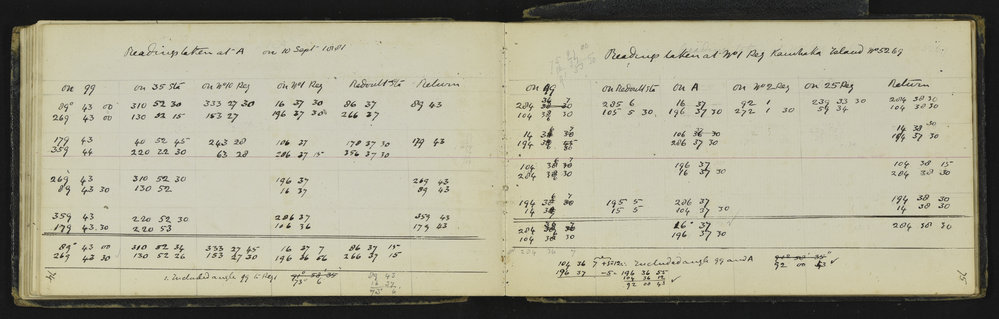 Readings taken at A on 10 Sept 1881
on 99 on 35 Sta on No 10 Peg on No 1 Peg Redoubt Sta Return
89° 43 00 310 52 30 333 27 30 16 37 30 86 37 89 43
269 43 00 130 52 15 153 27 196 37 30 266 37
179 43 40 52 45 243 28 106 37 178 37 30 179 43
359 44 220 22 30 63 28 286 37 15 356 37 30
269 43 310 52 30 196 37 269 43
89 43 30 130 52 16 37 89 43
359 43 220 52 30 286 37 359 43
179 43 30 220 53 106 36 179 43
89° 43 00 310 52 34 333 27 45 16 37 7 86 37 15
269 43 30 130 52 26 153 27 30 196 36 56 266 37 15
Included angle 99 & Peg 1
73° 6
89 43
16 37
73 6
74
Readings taken at No 1 Peg Island No 5269
on 99 on Redoubt Sta on A on No 2 Peg on 25 Peg Return
284 38 30 285 6 16 37 92 1 239 33 30 284 38 30
104 38 30 105 5 30 196 37 30 272 1 30 59 34 104 38 30
14 38 30 106 36 30 14 38 30
194 38 45 286 37 30 194 37 30
104 38 30 196 37 104 38 15
284 38 30 16 37 30 284 38 30
194 38 30 195 5 286 37 194 38 30
14 38 15 5 104 37 30 14 38 30
284 38 30 16° 37 284 38 30
104 38 30 196 37 30
284 36
104 36 7 +5=12 Included angle 99 and A
196 37 -5= 196 36 55 92 00 43
104 36 12
92 00 43
75